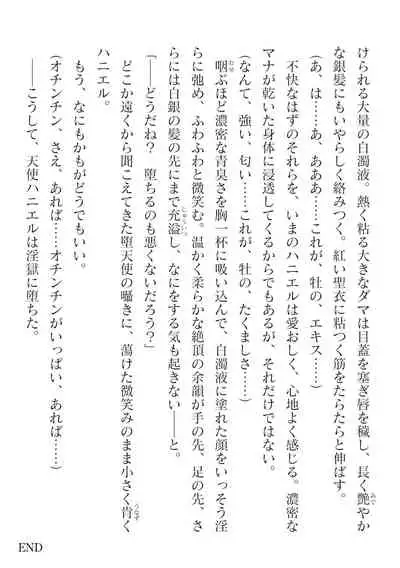 けられる大量の白濁液。熱く粘る大きなダマは目蓋を塞ぎ唇を穢し、長く艶やか
な銀髪にもいやらしく絡みつく。紅い聖衣に粘つく筋をたらたらと伸ばす。
(あ、は……あ、あああ……これが、牡の、エキス……)
不快なはずのそれらを、いまのハニエルは愛おしく、心地よく感じる。濃密な
マナが乾いた身体に浸透してくるからでもあるが、それだけではない。
(なんて、強い、匂い……これが、牡の、たくましさ……)
咽ぶほど濃密な青臭さを胸一杯に吸い込んで、白濁液に塗れた顔をいっそう淫
らに弛め、ふわふわと微笑む。温かく柔らかな絶頂の余韻が手の先、足の先、さ
らには白銀の髪の先にまで充溢し、なにをする気も起きない――と。
「――どうだね? 堕ちるのも悪くないだろう?」
どこか遠くから聞こえてきた堕天使の囁きに、蕩けた微笑みのまま小さく肯く
ハニエル。
もう、なにもかもがどうでもいい。
(オチンチン、さえ、あれば……オチンチンがいっぱい、あれば……)
――こうして、天使ハニエルは淫獄に堕ちた。
END